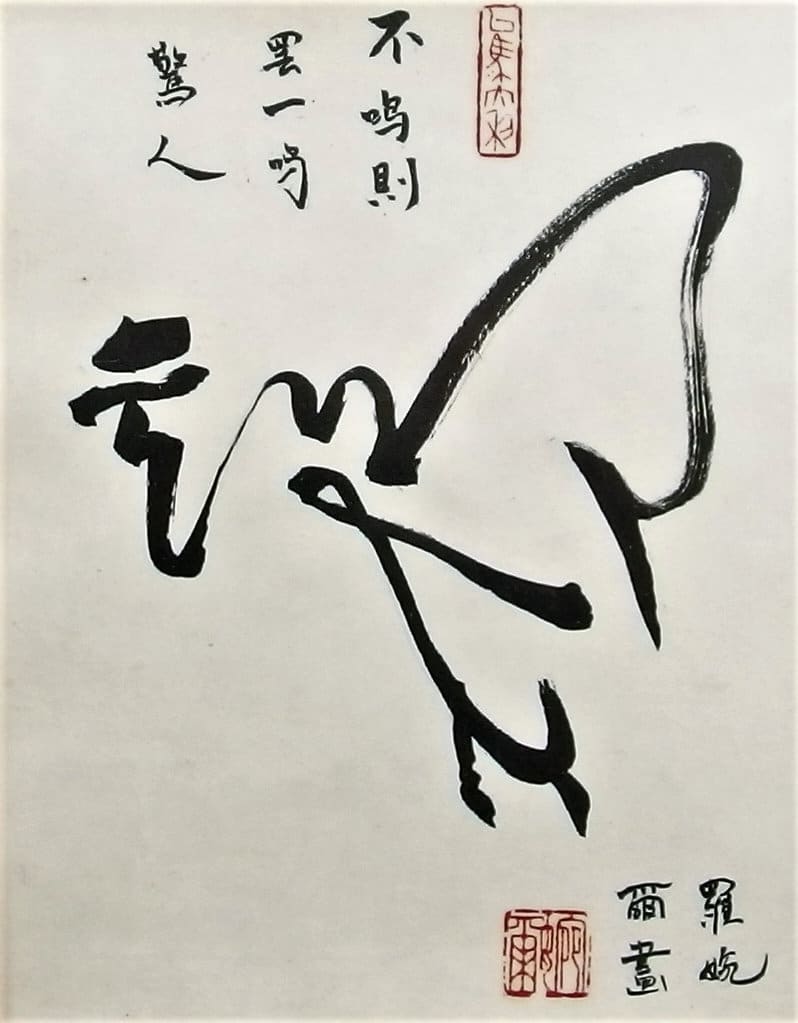 不鳴則
罢一鳴
驚人
羅婉
爾畫